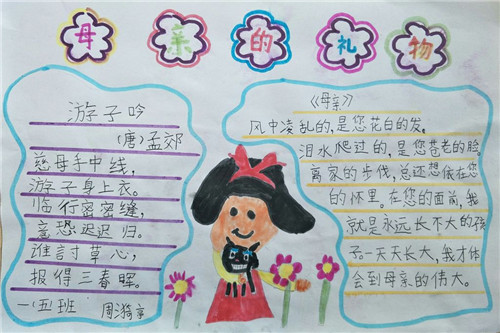 母亲的礼物
游子吟
(唐)孟郊
慈母手中线,
游子身上衣。
临行密密缝,
意恐迟迟归。
谁言寸草心,
报得三春晖。
一(五)班 周漪
《母亲》
风中凌乱的,是您花白的发。
泪水爬过的,是您苍老的脸。
离家的步伐,总还想依在您
的怀里。在您的面前,我
就是永远长不大的孩
子。一天天长大,我才体
会到母亲的伟大。